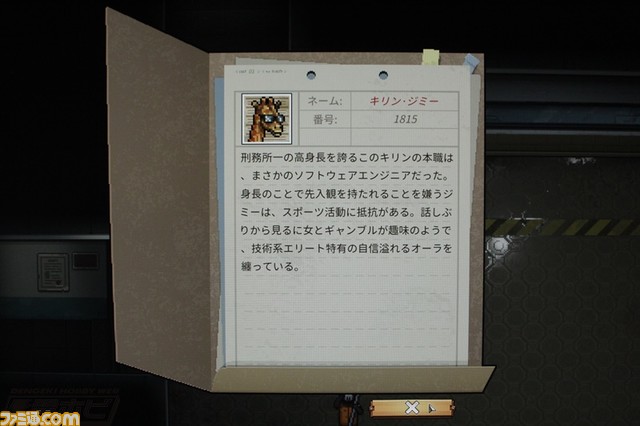 ネーム: キリン・ジミー
番号: 1815
刑務所一の高身長を誇るこのキリンの本職は
、まさかのソフトウェアエンジニアだった。
身長のことで先入観を持たれることを嫌うジ
ミーは、スポーツ活動に抵抗がある。話しぶ
りから見るに女とギャンブルが趣味のようで
、技術系エリート特有の自信溢れるオーラを
纏っている。
ファミ通.com